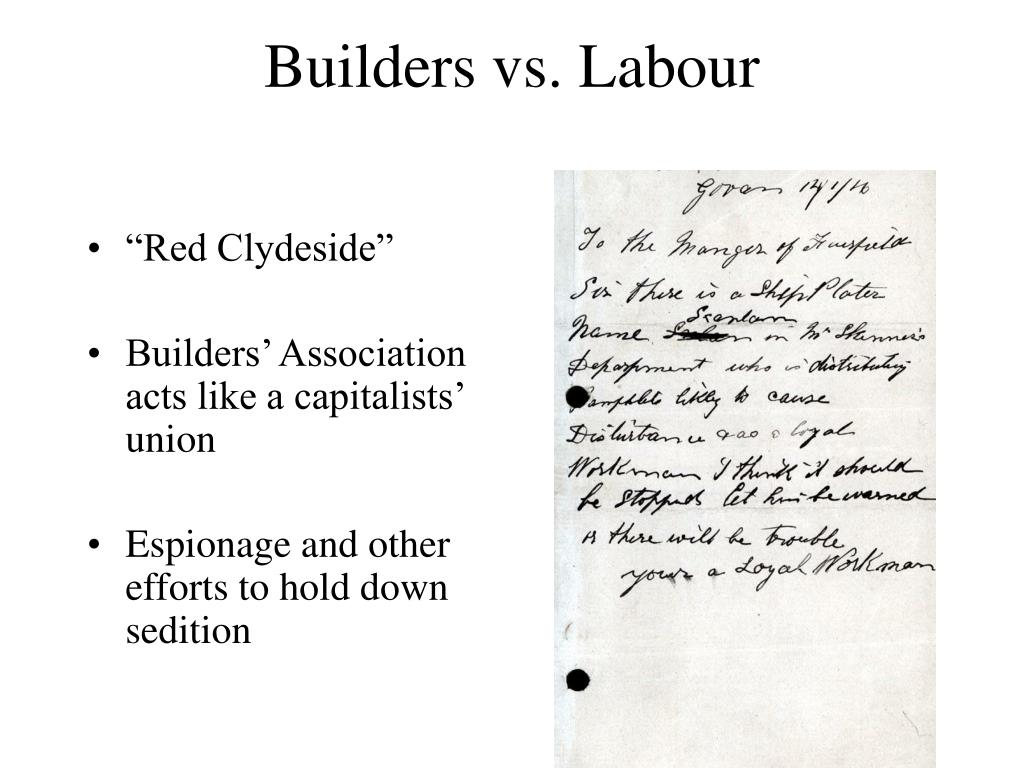 Builders vs. Labour
• “Red Clydeside”
• Builders’ Association
acts like a capitalists’
union
• Espionage and other
efforts to hold down
sedition
Govan
To the Manger of Fairfield
Sir there is a Ship Plater
Scanlan
Name in Mr Skinner's
Department who is distributing
Pamphlets likly to cause
Disturbance a loyal
Workman I think it should
be Stopped let him be warned
there will be trouble
yours a Loyal Workman